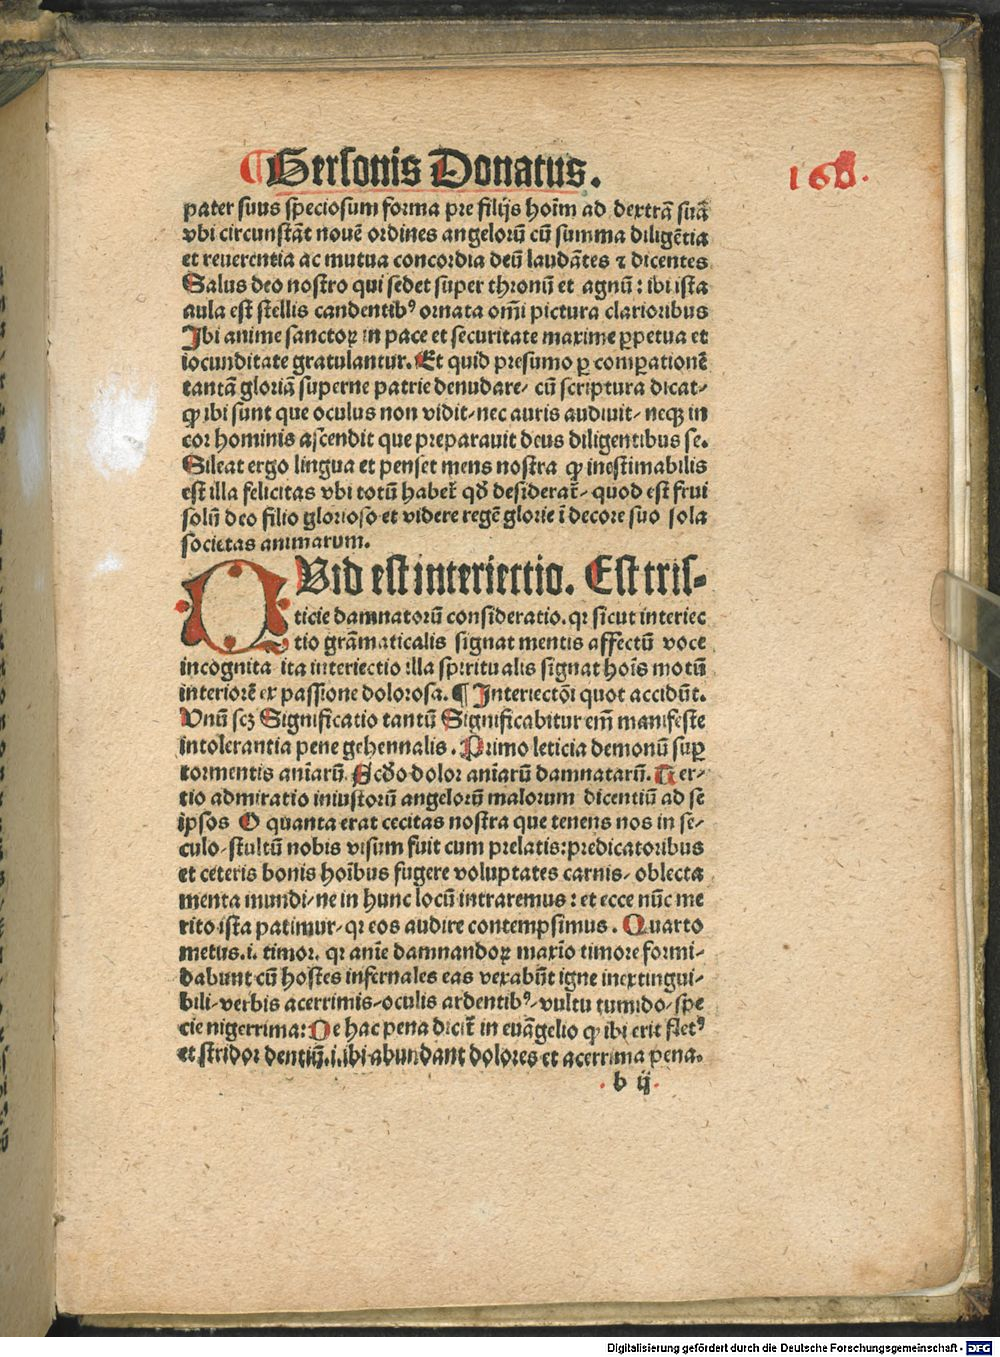 ¶ Gersonis Donatus.
168.
pater suus speciosum forma pre filijs hoīm ad dextrā suā
vbi circunstāt nouē ordines angelorū cū summa diligētia
et reuerentia ac mutua concordia deū laudātes ⁊ dicentes
Salus deo nostro qui sedet super thronū et agnū : ibi ista
aula est stellis candentibꝰ ornata om̄i pictura clarioribus
Ibi anime sanctoꝝ in pace et securitate maxime ꝑpetua et
iocunditate gratulantur. Et quid presumo ꝑ comꝑationē
tantā gloriā superne patrie denudare/ cū scriptura dicat/
ꝙ ibi sunt que oculus non vidit/ nec auris audiuit/ neqꝫ in
cor hominis ascendit que preparauit deus diligentibus se.
Sileat ergo lingua et penset mens nostra ꝙ inestimabilis
est illa felicitas vbi totū habet̄ qđ desiderat̄/ quod est frui
solū deo filio glorioso et videre regē glorie ī decore suo sola
societas animarum.
QVid est interiectio. Est tris/
ticie damnatorū consideratio. qꝛ sicut interiec
tio grāmaticalis signat mentis affectū voce
incognita ita interiectio illa spiritualis signat hoīs motū
interiorē ex passione dolorosa. ¶ Interiectōi quot accidūt.
Vnū scꝫ Significatio tantū Significabitur em̄ manifeste
intolerantia pene gehennalis. Primo leticia demonū suꝑ
tormentis aīarū. Scđo dolor aīarū damnatarū. Ter/
tio admiratio iniustorū angelorū malorum dicentiū ad se
ipsos O quanta erat cecitas nostra que tenens nos in se/
culo/ stultū nobis visum fuit cum prelatis: predicatoribus
et ceteris bonis hoībus fugere voluptates carnis/ oblecta
menta mundi/ ne in hunc locū intraremus : et ecce nūc me
rito ista patimur/ qꝛ eos audire contempsimus. Quarto
metus .i. timor. qꝛ anīe damnandoꝝ maxīo timore formi/
dabunt cū hostes infernales eas vexabūt igne inextingui/
bili/ verbis acerrimis/ oculis ardentibꝰ/ vultu tumido/ spe
cie nigerrima: De hac pena dicit̄ in euāgelio ꝙ ibi erit fletꝰ
et stridor dentiū .i. ibi abundant dolores et acerrima pena.
b ij
Digitalisierung gefördert durch die Deutsche Forschungsgemeinschaft - DFG